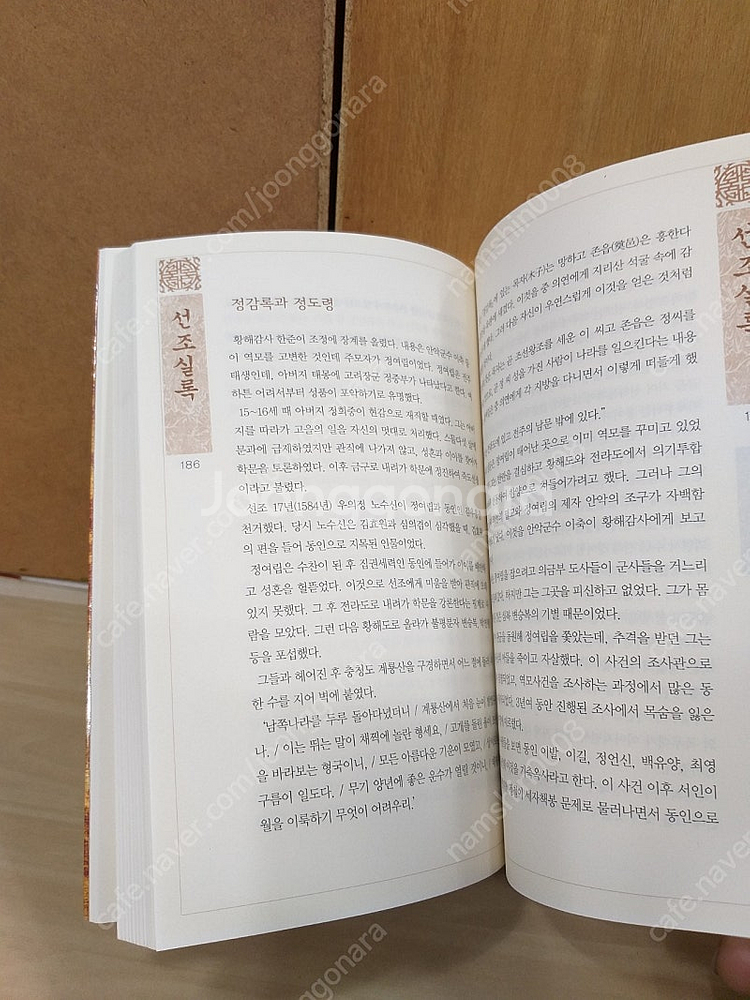 선조실록
186
정감록과 정도령
황해감사 한준이 조정에 장계를 올렸다. 내용은 안악군수
이 역모를 고변한 것인데 주모자가 정여립이었다. 정여립은 전주
태생인데, 아버지 태몽에 고려장군 정중부가 나타났다고 한다.
하튼 어려서부터 성품이 포악하기로 유명했다.
15~16세 때 아버지 정희증이 현감으로 재직할 때였다. 그는
지를 따라가 고을의 일을 자신의 멋대로 처리했다.
문과에 급제하였지만 관직에 나가지 않고, 성혼과 이이를
학문을 토론하였다. 이후 금구로 내려가 학문에 정진하여
이라고 불렸다.
선조 17년(1584년) 우의정 노수신이 정여립과
천거했다. 당시 노수신은 김효원과 심의겸이 심각했을 때
의 편을 들어 동인으로 지목된 인물이었다.
정여립은 수찬이 된 후 집권세력인 동인에 들어가 이이를
고 성혼을 헐뜯었다. 이것으로 선조에게 미움을 받아 관직에
있지 못했다. 그 후 전라도로 내려가 학문을 강론한다는
람을 모았다. 그런 다음 황해도로 올라가 불평분자 변숭복,
등을 포섭했다.
그들과 헤어진 후 충청도 계룡산을 구경하면서 어느 절에
한 수를 지어 벽에 붙였다.
'남쪽나라를 두루 돌아다녔더니 / 계룡산에서 처음 눈이
나. / 이는 뛰는 말이 채찍에 놀란 형세요, / 고개를 돌린
을 바라보는 형국이니, / 모든 아름다운 기운이 모였고, /
구름이 일도다. / 무기 양년에 좋은 운수가 열릴 것이니,
월을 이룩하기 무엇이 어려우리.'
선조실록
목자(木子)는 망하고 존읍(奠邑)은 흥한다
이것을 중 의연에게 지리산 석굴 속에 감
그런 다음 자신이 우연스럽게 이것을 얻은 것처럼
곧 조선왕조를 세운 이 씨고 존읍은 정씨를
정 씨 성을 가진 사람이 나라를 일으킨다는 내용
의연에게 각 지방을 다니면서 이렇게 떠들게 했
전주의 남문 밖에 있다."
태어난 곳으로 이미 역모를 꾸미고 있었
결심하고 황해도와 전라도에서 의기투합
쳐들어가려고 했다. 그러나 그의
정여립의 제자 안악의 조구가 자백함
이것을 안악군수 이축이 황해감사에게 보고
잡으려고 의금부 도사들이 군사들을 거느리
하지만 그는 그곳을 피신하고 없었다. 그가 몸
변숭복의 기별 때문이었다.
동원해 정여립을 쫓았는데, 추격을 받던 그는
죽이고 자살했다. 이 사건의 조사관으로
역모사건을 조사하는 과정에서 많은 동
3년여 동안 진행된 조사에서 목숨을 잃은
보면 동인 이발, 이길, 정언신, 백유양, 최영
기축옥사라고 한다. 이 사건 이후 서인이
세자책봉 문제로 물러나면서 동인으로
Joonggonara
cafe.naver.com/joonggonara
namshinb008